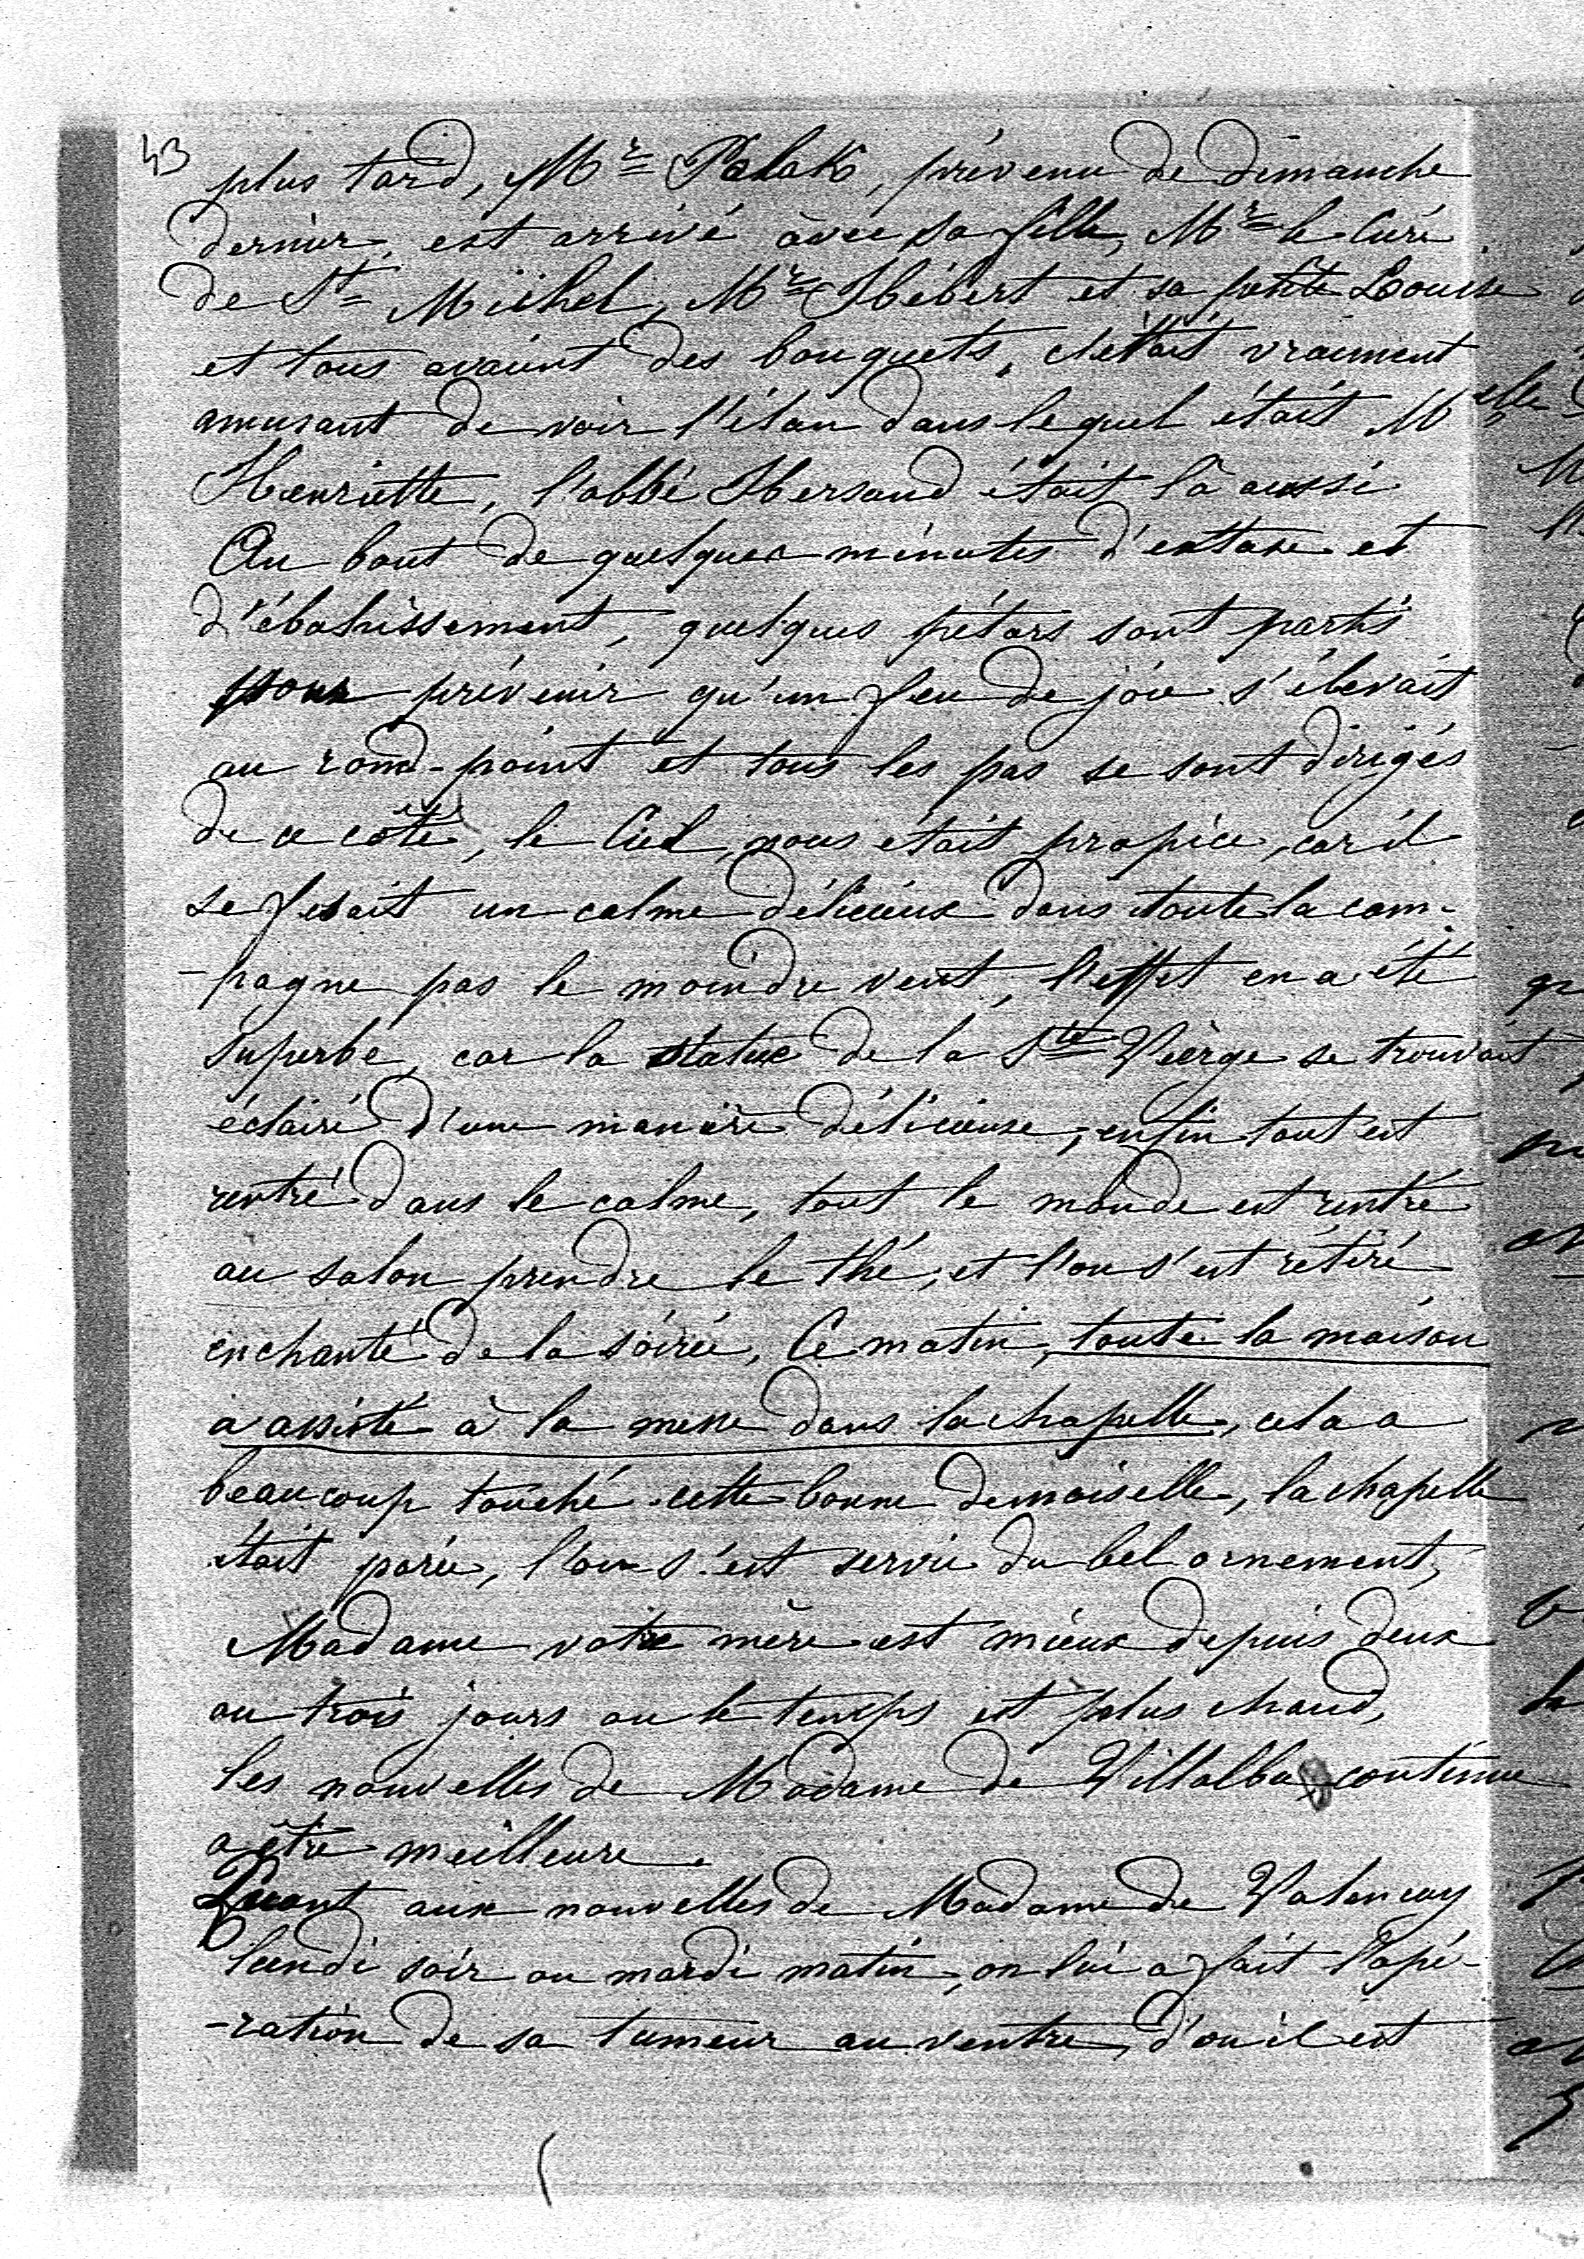 43
plus tard, Mr Polak, prévenu de dimanche
dernier, est arrivé avec sa fille, Mr le Curé
de St Michel, Mr Hébert et sa petite Louise
et tous avaient des bouquets, c'était vraiment
amusant de voir l'élan dans lequel était Melle
Henriette, l'abbé Hersand était là aussi
Au bout de quelques minutes d'extase et
d'ébahissement, quelques pétars sont partis
pour prévenir qu'un feu de joie s'élevait
au rond-point et tous les pas se sont dirigés
de ce côté, le Ciel nous était propice, car il
se fesait un calme délicieux dans toute la cam-
-pagne pas le moindre vent, l'effet en a été
superbe, car la statue de la Ste Vierge se trouvait
éclairé d'une manière délicieuse, enfin tout est
rentré dans le calme, tout le monde est rentré
au salon prendre le thé, et l'on s'est retiré
enchanté de la soirée. Ce matin, toute la maison
a assisté à la messe dans la chapelle, cela a
beaucoup touché cette bonne demoiselle, la chapelle
était parée, l'on s'est servie du bel ornement,
Madame votre mère est mieux depuis deux
ou trois jours ou le temps est plus chaud,
les nouvelles de Madame de Villalba continue
a être meilleure.
Quant aux nouvelles de Madame de Valencay
lundi soir ou mardi matin, on lui a fait l'opé-
-ration de sa tumeur au ventre, d'ou il est